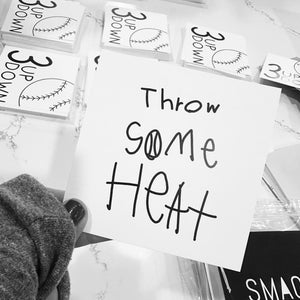 3 UP
DOWN
3 UP
DOWN
3 UP
DOWN
3 UP
DOWN
3 UP
Throw
SOME
HEAt
SMAC